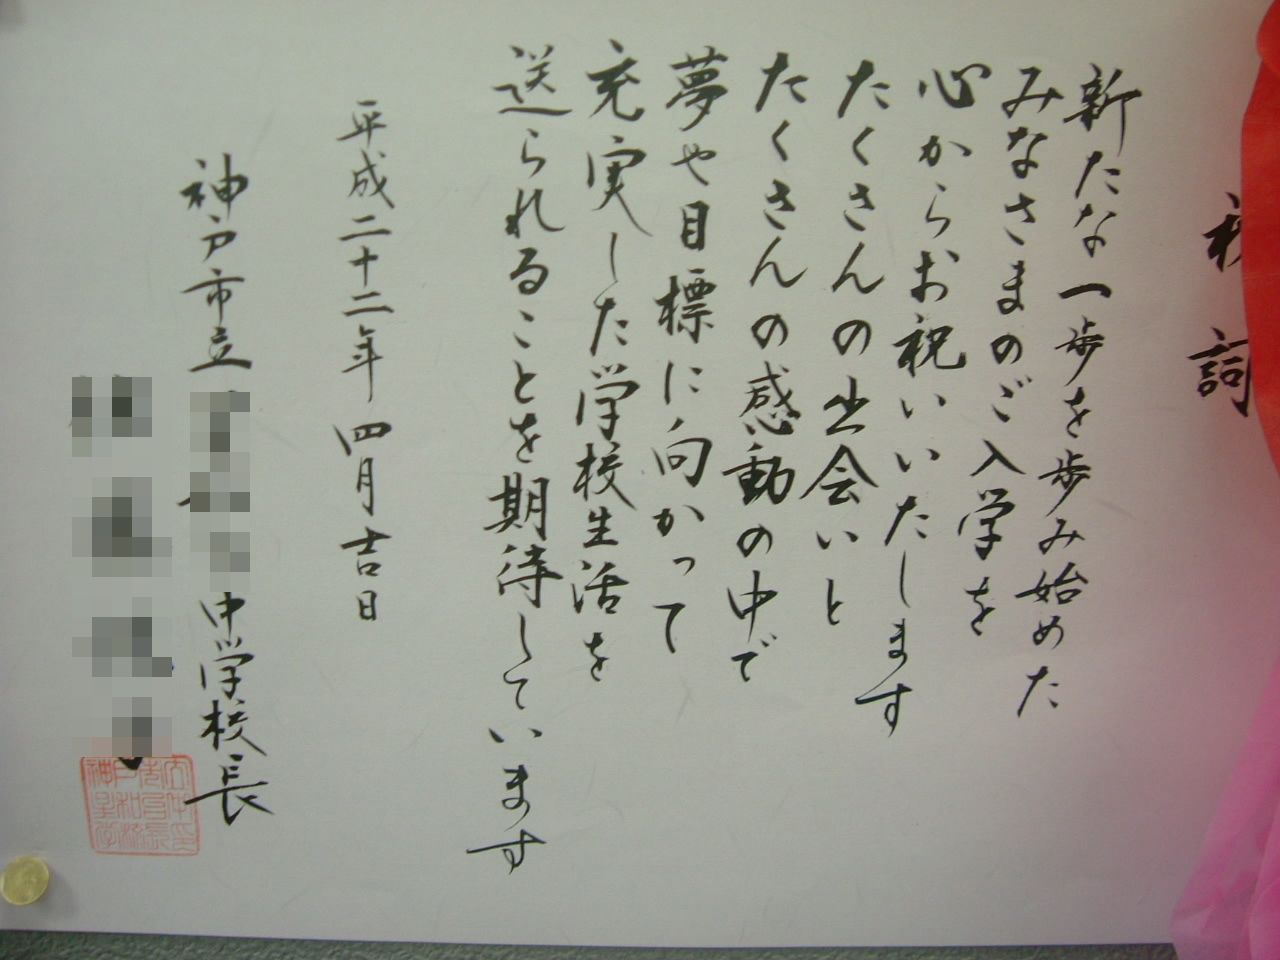 祝詞
新たな一歩を歩み始めた
みなさまのご入学を
心からお祝いいたします
たくさんの出会いと
たくさんの感動の中で
夢や目標に向かって
充実した学校生活を
送られることを期待しています
平成二十二年 四月吉日
神戸市立
中学校長